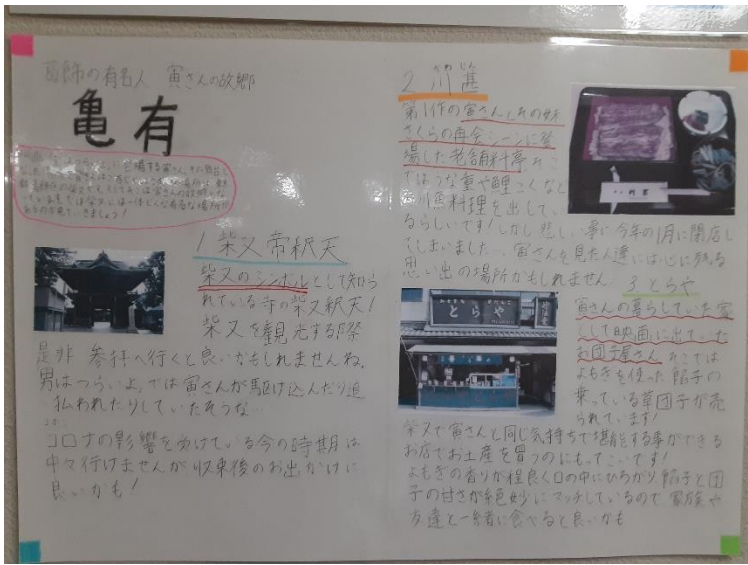 葛飾の有名人 寅さんの故郷
亀有
登場する寅さん。
1 柴又帝釈天
柴又のシンボルとして知ら
れている寺の柴又釈天!
柴又を観光する際
是非 参拝へ行くと良いかもしれませんね。
男はつらいよ。では寅さんが駆け込んだり追
い払われたりしていたそうな…
コロナの影響を受けている今の時期は
中々行けませんが収束後のお出かけに
良いかも!
2 川甚
かわ じん
第1作の寅さんとその妹
さくらの再会シーンに登
場した老舗料亭。ここ
ではうな重や鯉こくなど
川魚料理を出してい
るらしいです!しかし悲しい事に今年の1月に閉店し
てしまいました…。寅さんを見た人達には心に残る
思い出の場所かもしれません。
3 とらや
寅さんの暮らしていた家
として映画に出ていた
お団子屋さん。ここでは
よもぎを使った餡子の
乗っている草団子が売
られています!
柴又で寅さんと同じ気持ちで堪能する事ができる
お店でお土産を買うのにもってこいです!
よもぎの香りが程良く口の中にひろがり餡子と団
子の甘さが絶妙にマッチしているので家族や
友達と一緒に食べると良いかも
とらや